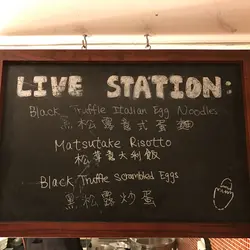 LIVE STATION:
Black Truffle Italian Egg Noodles
黑松露意式蛋麵
Matsutake Risotto
松茸意大利飯
Black Truffle Scrambled Eggs
黑松露炒蛋